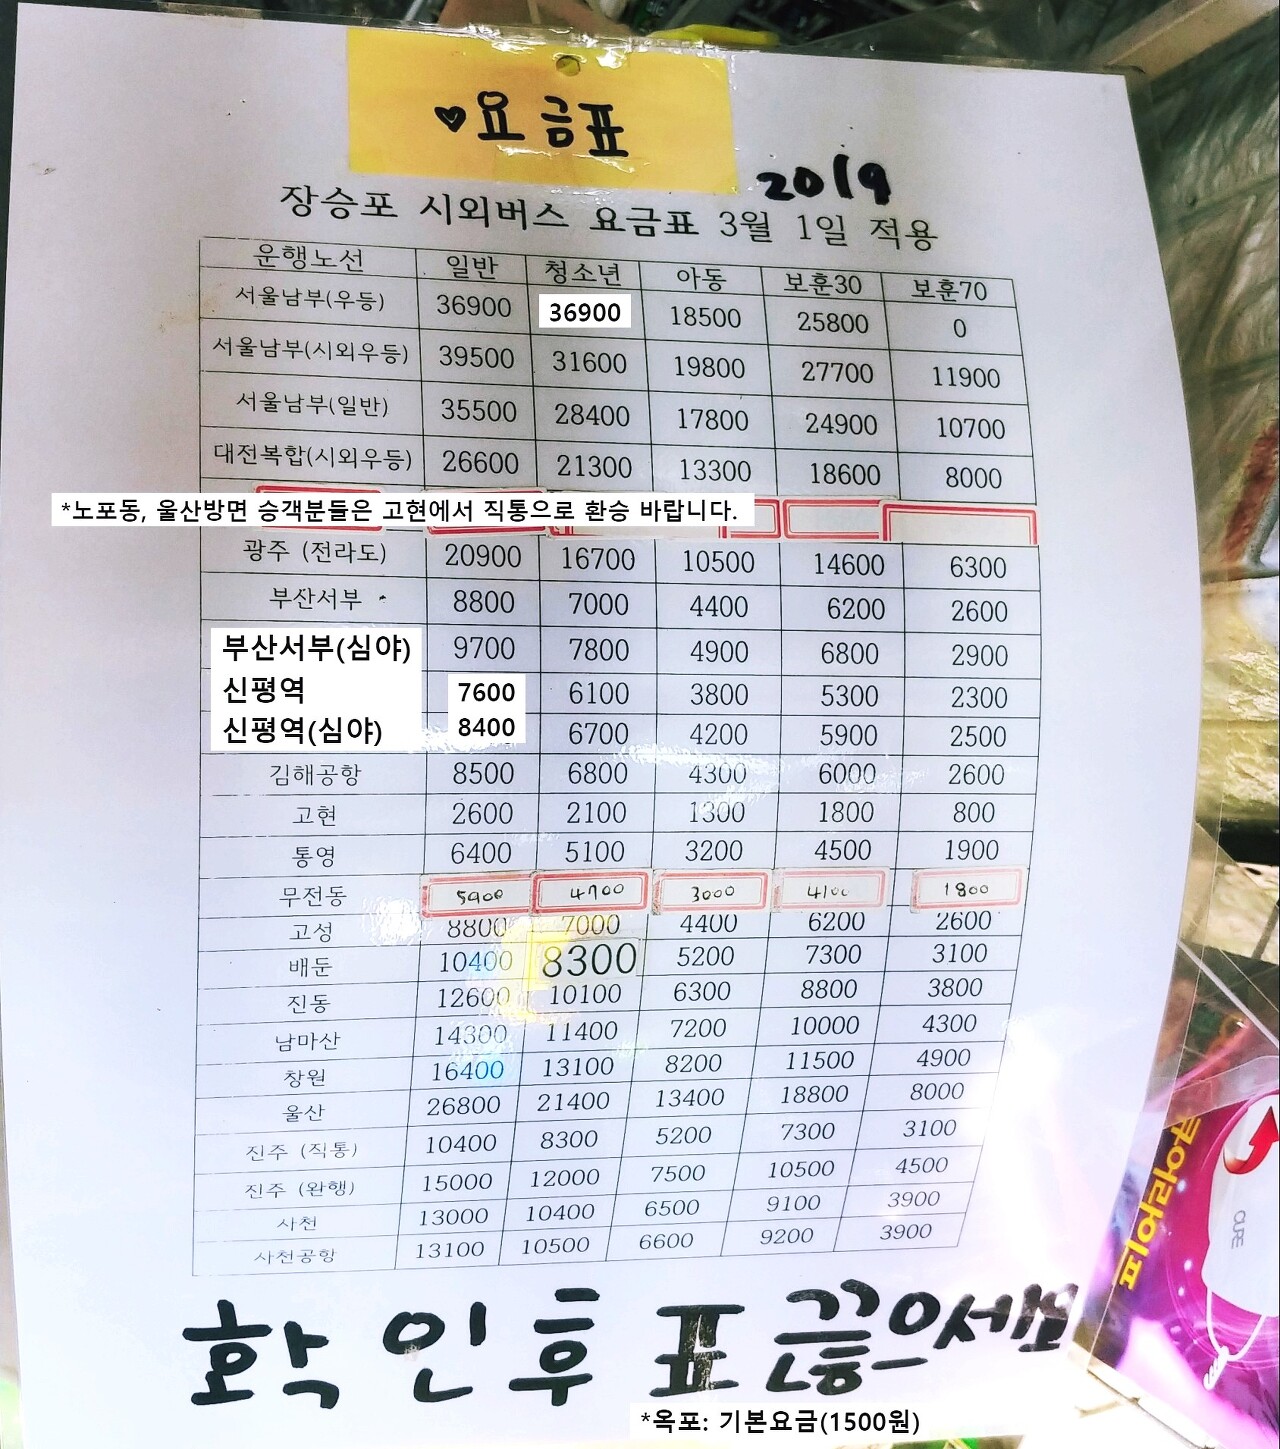 ♥요금표
2019
장승포 시외버스 요금표 3월 1일 적용
운행노선 일반 청소년 아동 보훈30 보훈70
서울남부(우등) 36900 36900 18500 25800 0
서울남부(시외우등) 39500 31600 19800 27700 11900
서울남부(일반) 35500 28400 17800 24900 10700
대전복합(시외우등) 26600 21300 13300 18600 8000
*노포동, 울산방면 승객분들은 고현에서 직통으로 환승 바랍니다.
광주 (전라도) 20900 16700 10500 14600 6300
부산서부 8800 7000 4400 6200 2600
부산서부(심야) 9700 7800 4900 6800 2900
신평역 7600 6100 3800 5300 2300
신평역(심야) 8400 6700 4200 5900 2500
김해공항 8500 6800 4300 6000 2600
고현 2600 2100 1300 1800 800
통영 6400 5100 3200 4500 1900
무전동 5900 4700 3000 4100 1800
고성 8800 7000 4400 6200 2600
배둔 10400 8300 5200 7300 3100
진동 12600 10100 6300 8800 3800
남마산 14300 11400 7200 10000 4300
창원 16400 13100 8200 11500 4900
울산 26800 21400 13400 18800 8000
진주 (직통) 10400 8300 5200 7300 3100
진주 (완행) 15000 12000 7500 10500 4500
사천 13000 10400 6500 9100 3900
사천공항 13100 10500 6600 9200 3900
확인후 표 끊으세요
*옥포: 기본요금(1500원)
큐어라이프
CURE